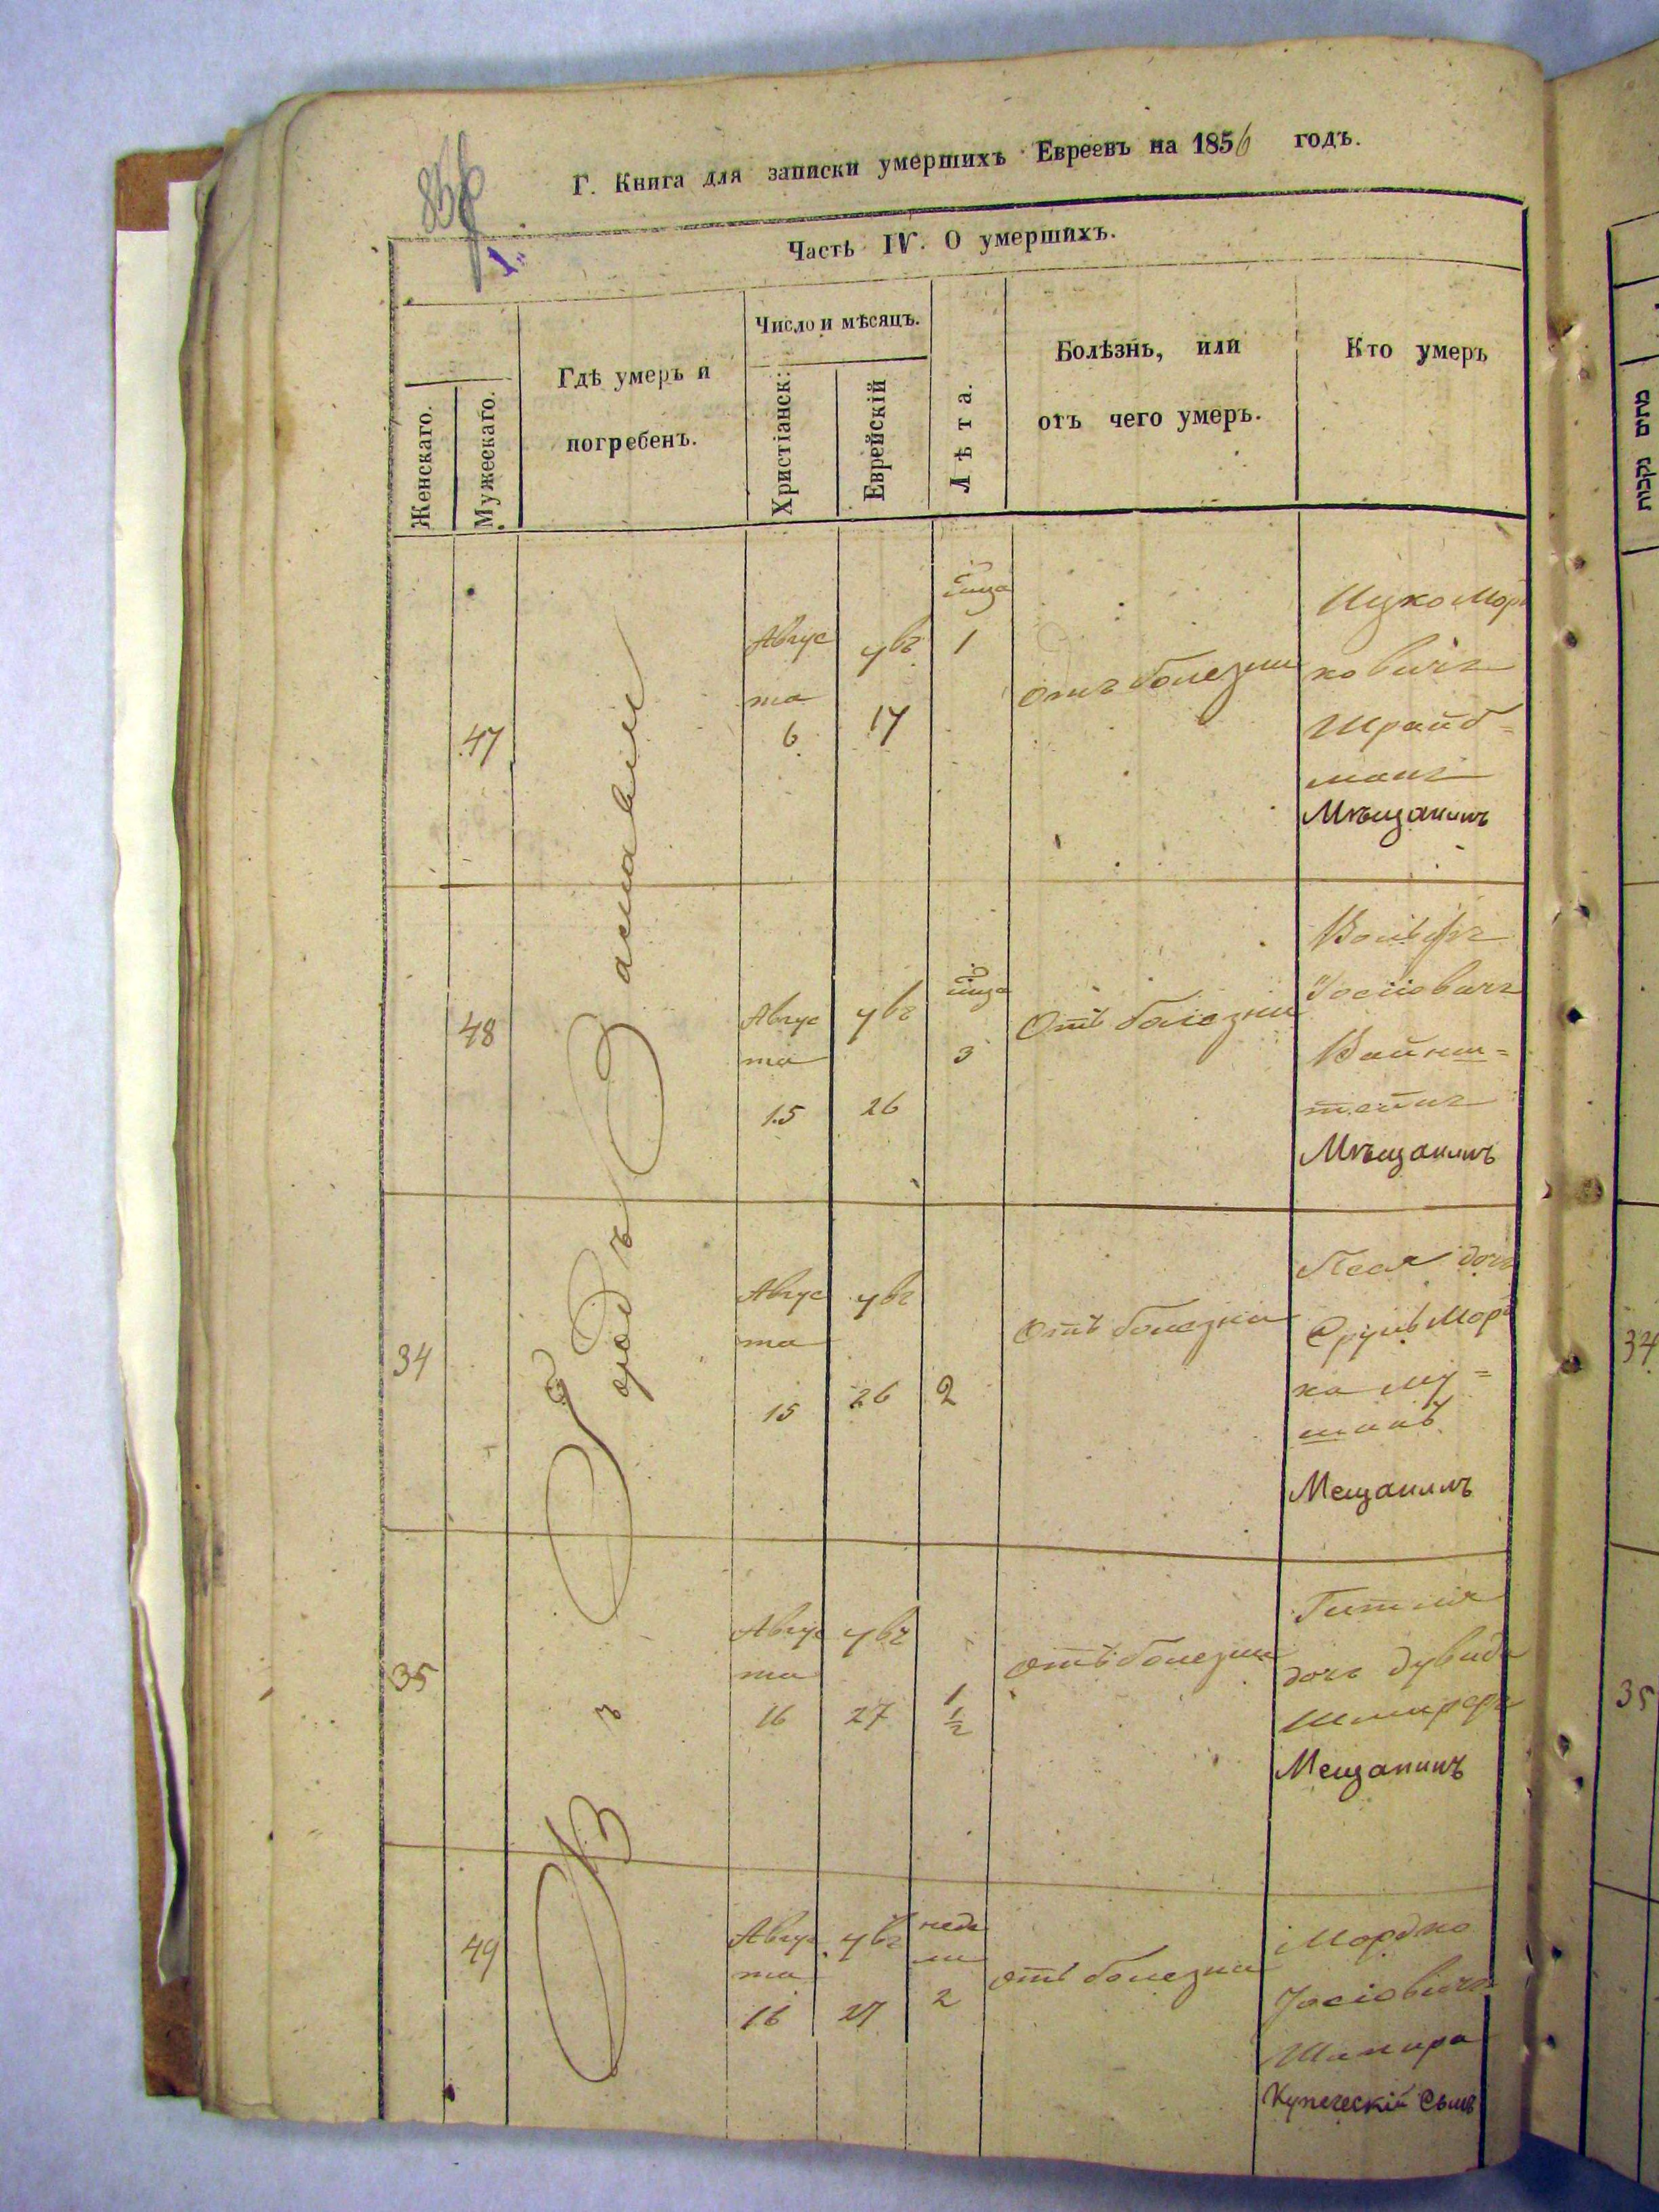 Г. Книга для записки умершихъ Евреевъ на 1856 годъ.
856
1
Часть IV. О умершихъ.
Женскаго.
Мужескаго.
Гдѣ умеръ и
погребенъ.
Число и мѣсяцъ.
Христіанск:
Еврейскій
Лѣта.
Болѣзнь, или
отъ чего умеръ.
Кто умеръ
מתים נקבות
Въ Городъ Заславли
47
Авгус
та
6
увъ
17
1
отъ болезни
Ицко Мор
ковичъ
Шрайб=
манъ
Мѣщанинъ
48
Авгус
та
15
увъ
26
3
Отъ болезни
Вольфъ
Іосіовичъ
Вайнш=
тейнъ
Мѣщанинъ
34
Авгус
та
15
увъ
26
2
Отъ болезни
Песя дочь
Сруль Мор
ка
Мещанинъ
34
35
Авгус
та
16
увъ
27
1
1/2
отъ болезни
Гитля
дочь Дувида
Мещанинъ
35
49
Авгус
та
16
увъ
27
неде
ли
2
отъ болезни
Мордко
Іосіовичъ
Шапира
Купеческій Сынъ